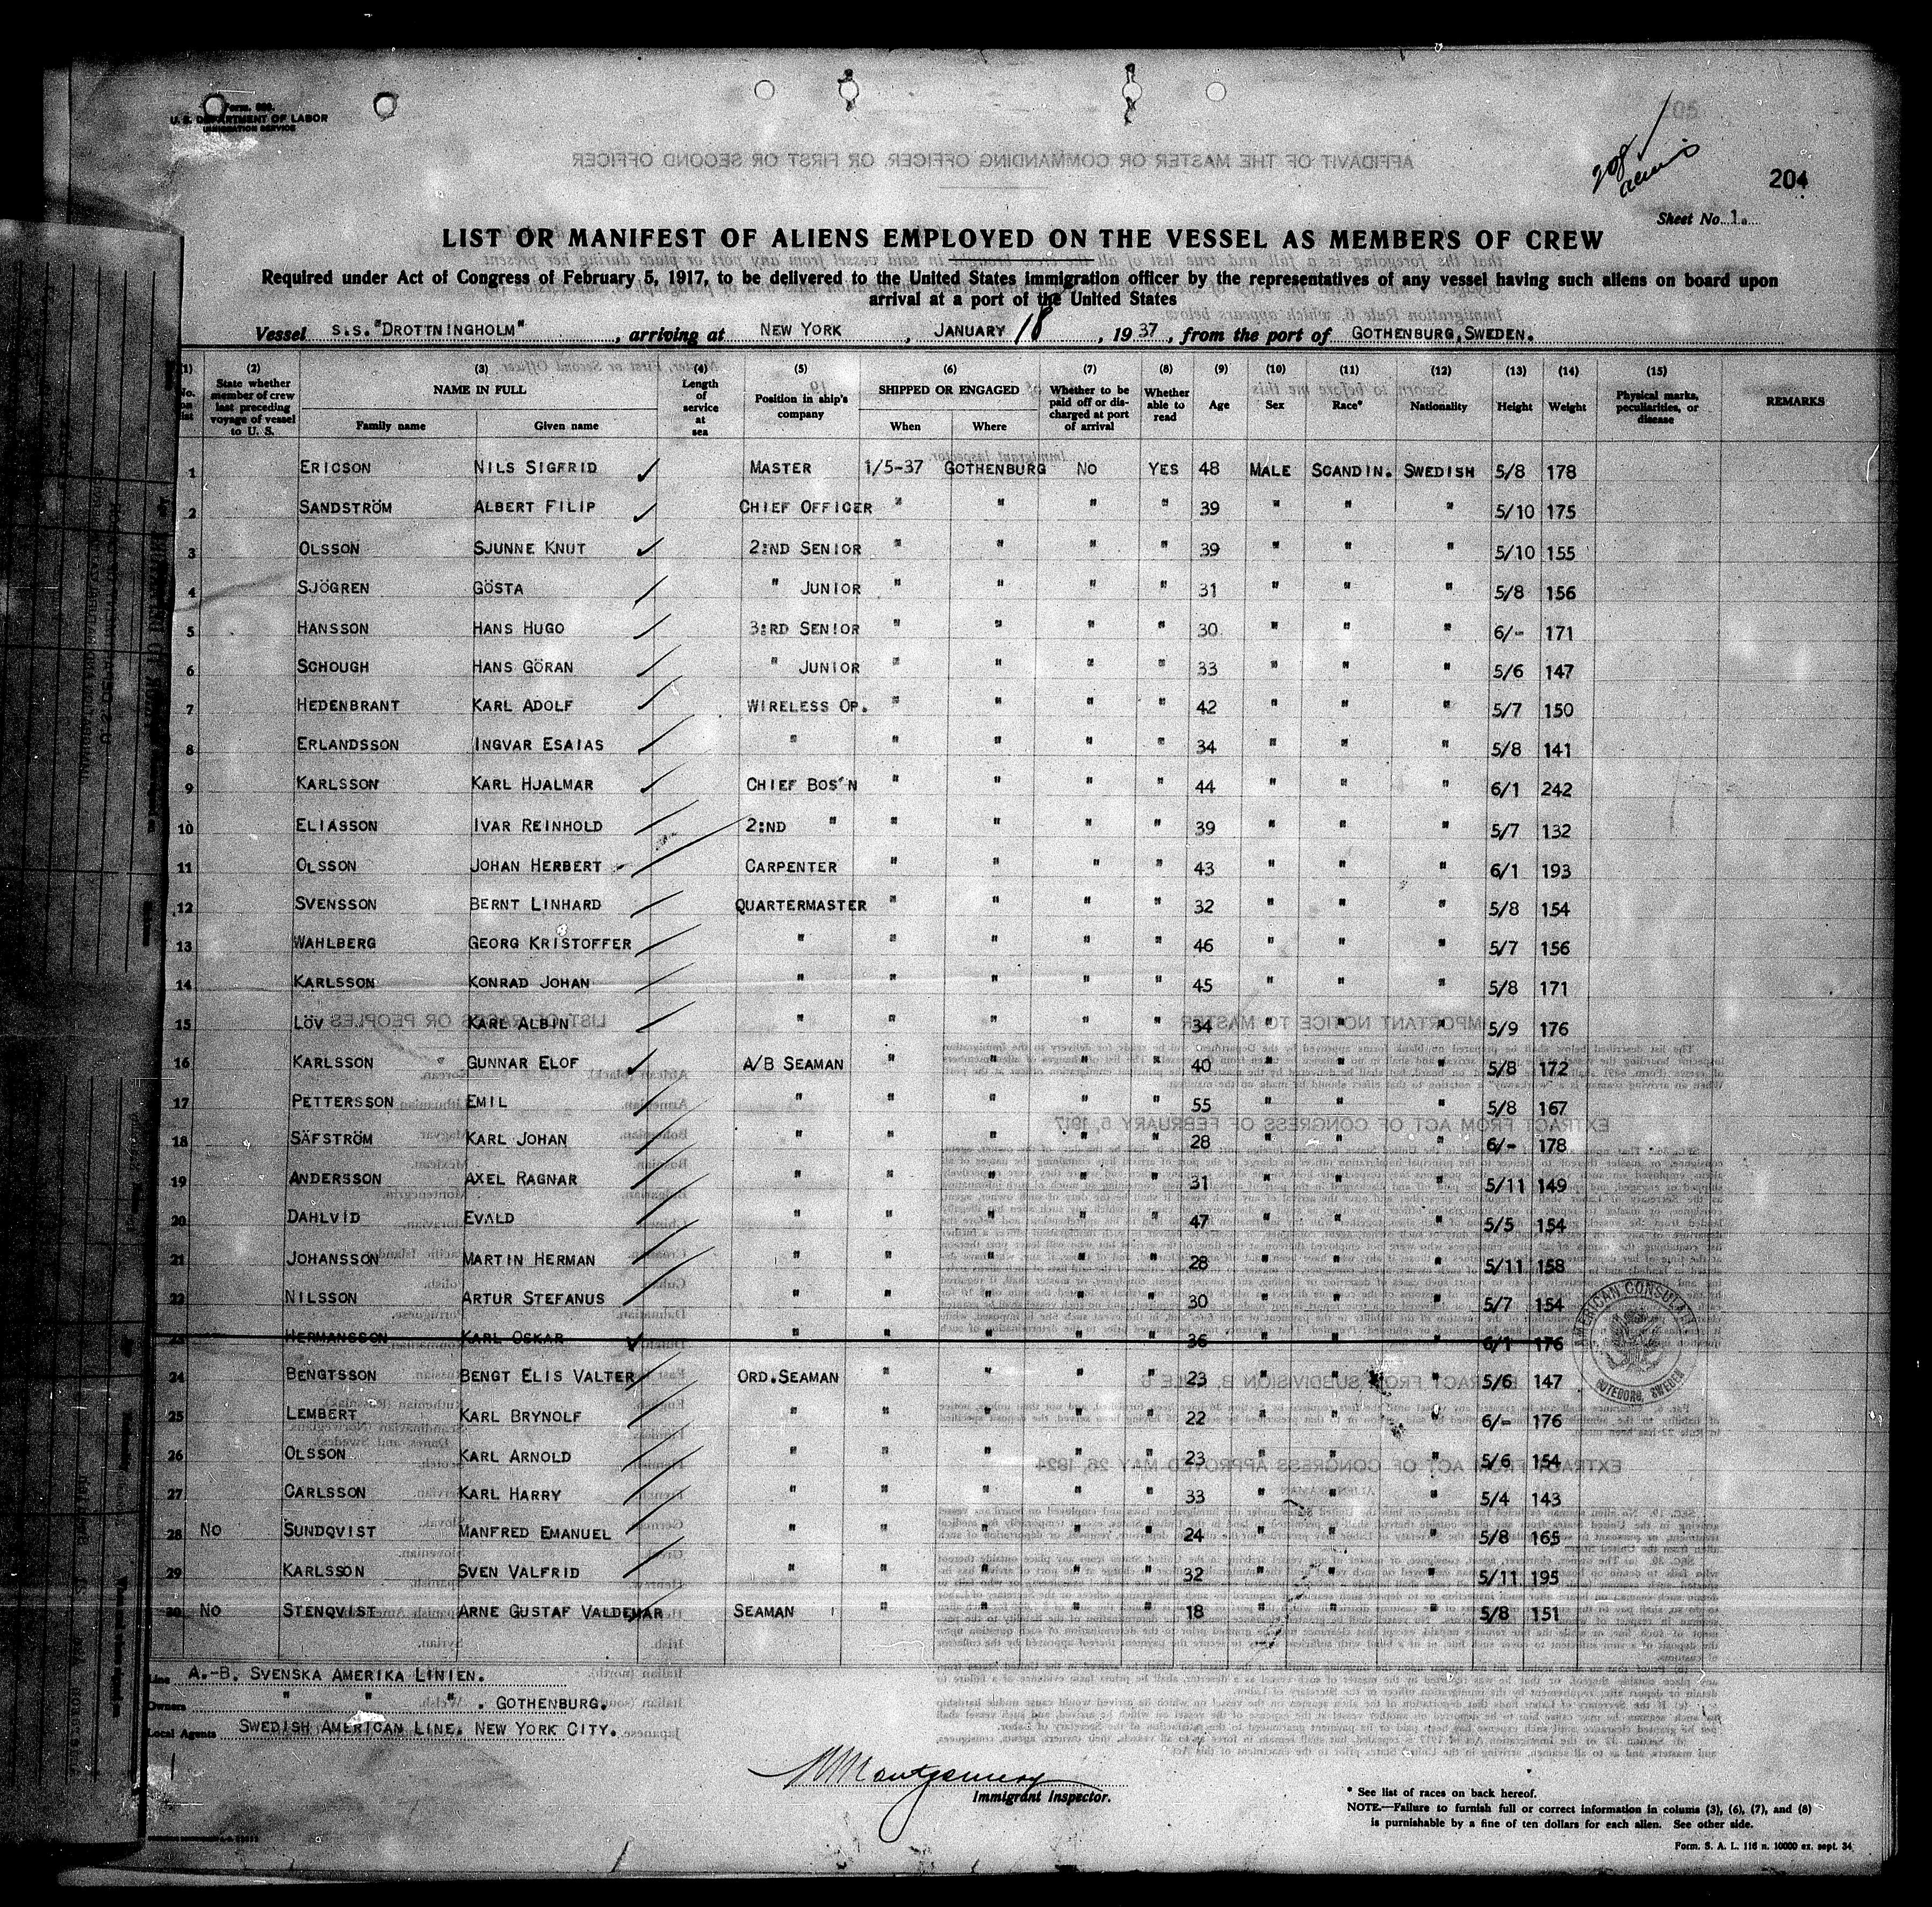 Form 689.
U. S. DEPARTMENT OF LABOR
IMMIGRATION SERVICE
208
aliens
204
Sheet No. 1.
LIST OR MANIFEST OF ALIENS EMPLOYED ON THE VESSEL AS MEMBERS OF CREW
Required under Act of Congress of February 5, 1917, to be delivered to the United States immigration officer by the representatives of any vessel having such aliens on board upon
arrival at a port of the United States
Vessel S.S. "DROTTNINGHOLM", arriving at NEW YORK, JANUARY 18, 1937, from the port of GOTHENBURG, SWEDEN.
(1) No. on list (2) State whether member of crew last preceding voyage of vessel to U. S. (3) NAME IN FULL Family name Given name (4) Length of service at sea (5) Position in ship's company (6) SHIPPED OR ENGAGED When Where (7) Whether to be paid off or discharged at port of arrival (8) Whether able to read (9) Age (10) Sex (11) Race* (12) Nationality (13) Height (14) Weight (15) Physical marks, peculiarities, or disease REMARKS
1 ERICSON NILS SIGFRID MASTER 1/5-37 GOTHENBURG NO YES 48 MALE SCANDIN. SWEDISH 5/8 178
2 SANDSTRÖM ALBERT FILIP CHIEF OFFICER " " " " 39 " " " 5/10 175
3 OLSSON SJUNNE KNUT 2:ND SENIOR " " " " 39 " " " 5/10 155
4 SJÖGREN GÖSTA " JUNIOR " " " " 31 " " " 5/8 156
5 HANSSON HANS HUGO 3:RD SENIOR " " " " 30 " " " 6/- 171
6 SCHOUGH HANS GÖRAN " JUNIOR " " " " 33 " " " 5/6 147
7 HEDENBRANT KARL ADOLF WIRELESS OP. " " " " 42 " " " 5/7 150
8 ERLANDSSON INGVAR ESAIAS " " " " " 34 " " " 5/8 141
9 KARLSSON KARL HJALMAR CHIEF BOS'N " " " " 44 " " " 6/1 242
10 ELIASSON IVAR REINHOLD 2:ND " " " " " 39 " " " 5/7 132
11 OLSSON JOHAN HERBERT CARPENTER " " " " 43 " " " 6/1 193
12 SVENSSON BERNT LINHARD QUARTERMASTER " " " " 32 " " " 5/8 154
13 WAHLBERG GEORG KRISTOFFER " " " " " 46 " " " 5/7 156
14 KARLSSON KONRAD JOHAN " " " " " 45 " " " 5/8 171
15 LÖV KARL ALBIN " " " " " 34 " " " 5/9 176
16 KARLSSON GUNNAR ELOF A/B SEAMAN " " " " 40 " " " 5/8 172
17 PETTERSSON EMIL " " " " " 55 " " " 5/8 167
18 SÄFSTRÖM KARL JOHAN " " " " " 28 " " " 6/- 178
19 ANDERSSON AXEL RAGNAR " " " " " 31 " " " 5/11 149
20 DAHLVID EVALD " " " " " 47 " " " 5/5 154
21 JOHANSSON MARTIN HERMAN " " " " " 28 " " " 5/11 158
22 NILSSON ARTUR STEFANUS " " " " " 30 " " " 5/7 154
23 HERMANSSON KARL OSKAR " " " " " 36 " " " 6/1 176
24 BENGTSSON BENGT ELIS VALTER ORD. SEAMAN " " " " 23 " " " 5/6 147
25 LEMBERT KARL BRYNOLF " " " " " 22 " " " 6/- 176
26 OLSSON KARL ARNOLD " " " " " 23 " " " 5/6 154
27 CARLSSON KARL HARRY " " " " " 33 " " " 5/4 143
28 NO SUNDQVIST MANFRED EMANUEL " " " " " 24 " " " 5/8 165
29 KARLSSON SVEN VALFRID " " " " " 32 " " " 5/11 195
30 NO STENQVIST ARNE GUSTAF VALDEMAR SEAMAN " " " " 18 " " " 5/8 151
AMERICAN CONSULATE
GOTEBORG, SWEDEN
Line A.-B. SVENSKA AMERIKA LINIEN.
Owners " " " . GOTHENBURG.
Local Agents SWEDISH AMERICAN LINE. NEW YORK CITY.
Montgomery
Immigrant Inspector.
* See list of races on back hereof.
NOTE.—Failure to furnish full or correct information in colums (3), (6), (7), and (8)
is purnishable by a fine of ten dollars for each alien. See other side.
Form. S. A. L. 116 n. 10000 ex. sept. 34